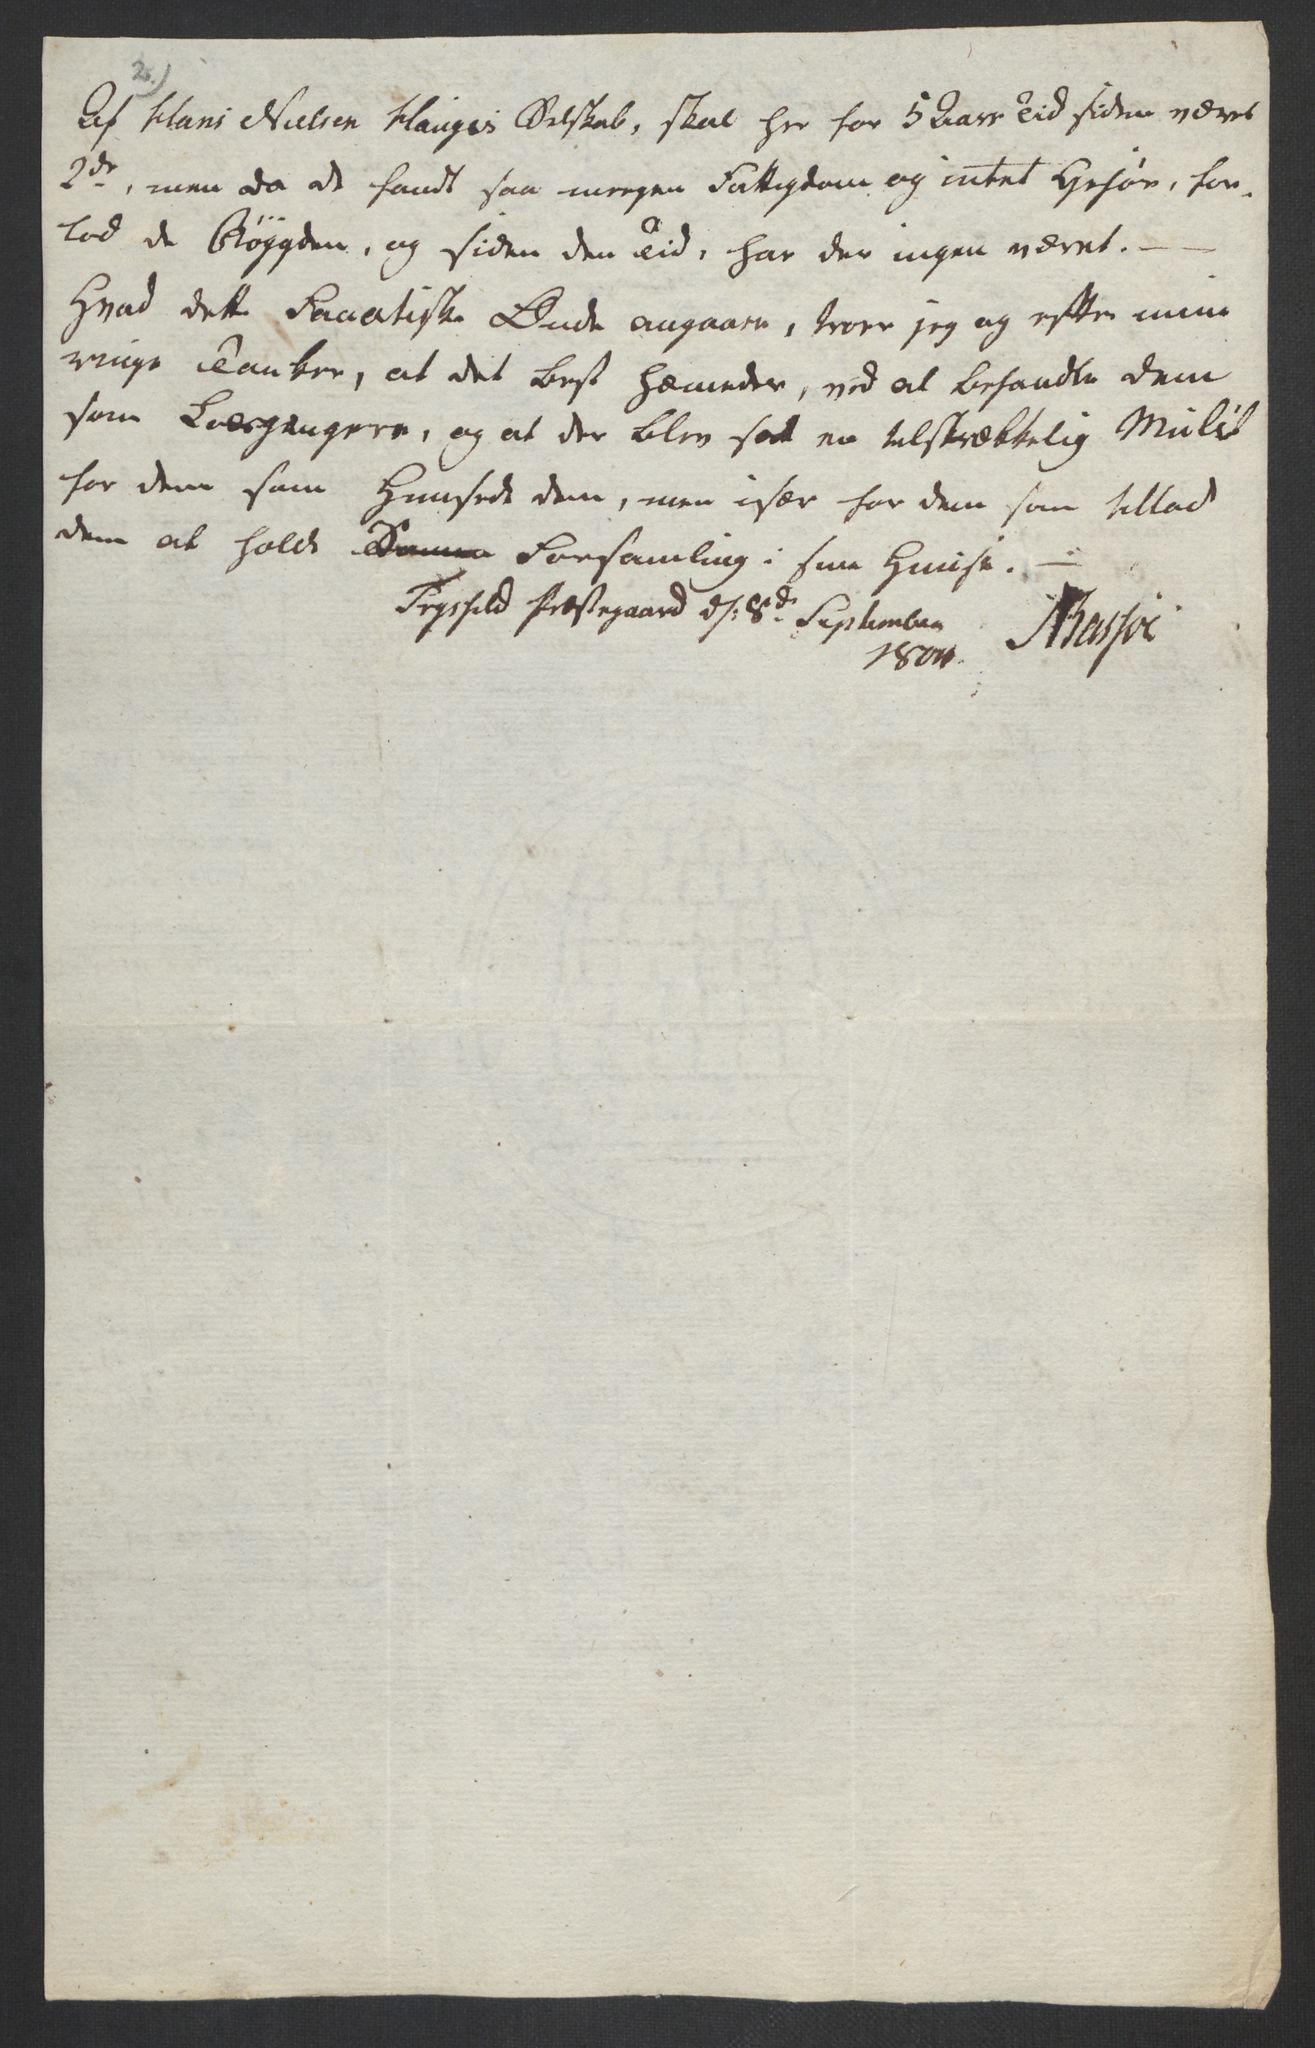 2.)
Af Hans Nielsen Hauges Selskab, skal her for 5 Aars Tid siden været
2de, men da de fandt saa megen Fattigdom og intet Gehør, for-
lod de Bøygden, og siden den Tid, har der ingen været. —
Hvad dette Fanatiske Onde angaaer, troer jeg og efter mine
ringe Tanker, at det best hæmedes, ved at behandle dem
som Løesgængere, og at der blev sat en tilstrækkelig Mulct
for dem som Huusede dem, men især for dem som tillod
dem at holde Forsamling i sine Huuse. —
Trysild Præstegaard d: 8de September
1804.